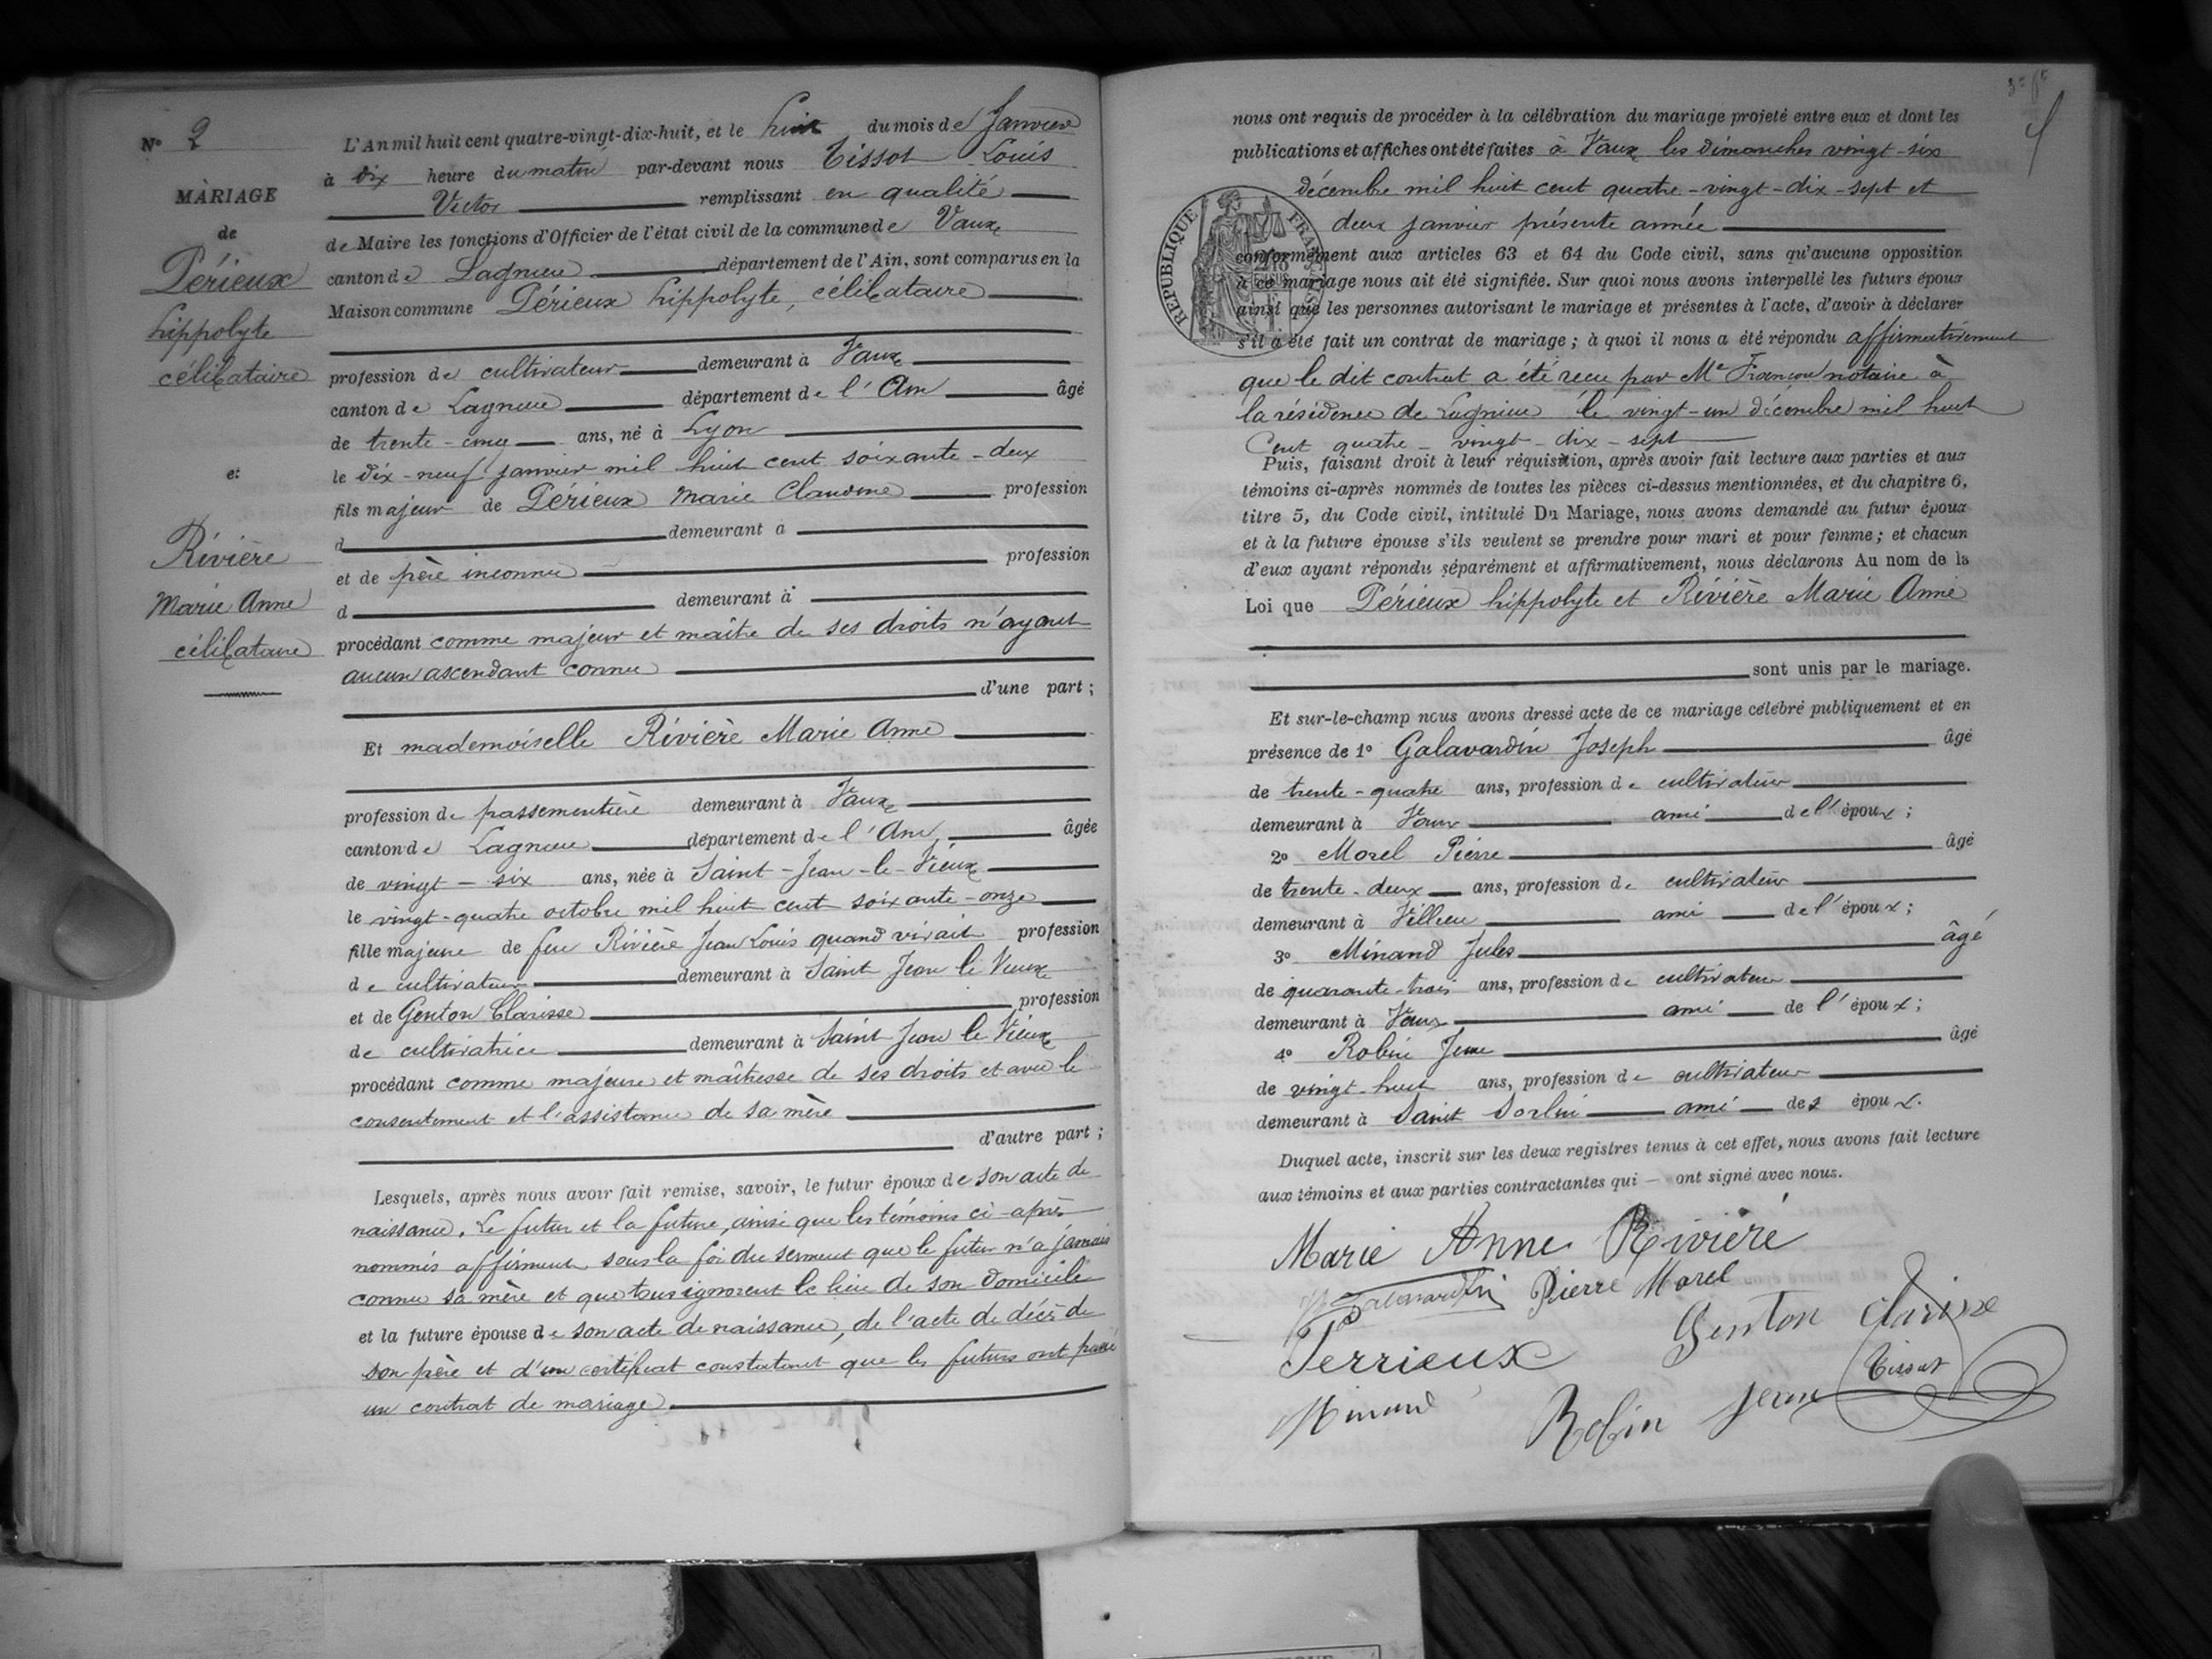 N° 2
MARIAGE
de
Périeux
hippolyte
célibataire
et
Rivière
Marie Anne
célibataire
L'An mil huit cent quatre-vingt-dix-huit, et le huit du mois de Janvier
à dix heure du matin par-devant nous Tissot Louis
Victor remplissant en qualité
de Maire les fonctions d'Officier de l'état civil de la commune de Vaux
canton de Lagnieu département de l'Ain, sont comparus en la
Maison commune Périeux hippolyte, célibataire
profession de cultivateur demeurant à Vaux
canton de Lagnieu département de l'Ain âgé
de trente-cinq ans, né à Lyon
le dix-neuf janvier mil huit cent soixante-deux
fils majeur de Périeux Marie Claudine profession
d demeurant à
et de père inconnu profession
d demeurant à
procédant comme majeur et maître de ses droits n'ayant
aucun ascendant connu
d'une part ;
Et mademoiselle Rivière Marie Anne
profession de passementière demeurant à Vaux
canton de Lagnieu département de l'Ain, âgée
de vingt-six ans, née à Saint-Jean-le-Vieux
le vingt-quatre octobre mil huit cent soixante-onze
fille majeure de feu Rivière Jean Louis quand vivait profession
de cultivateur demeurant à Saint Jean le Vieux
et de Genton Clarisse profession
de cultivatrice demeurant à Saint Jean le Vieux
procédant comme majeure et maîtresse de ses droits et avec le
consentement et l'assistance de sa mère
d'autre part ;
Lesquels, après nous avoir fait remise, savoir, le futur époux de son acte de
naissance. Le futur et la future, ainsi que les témoins ci-après
nommés affirment sous la foi du serment que le futur n'a jamais
connu sa mère et que tous ignorent le lieu de son domicile
et la future épouse de son acte de naissance, de l'acte de décès de
son père et d'un certificat constatant que les futurs ont passé
un contrat de mariage
nous ont requis de procéder à la célébration du mariage projeté entre eux et dont les
publications et affiches ont été faites à Vaux les dimanches vingt-six
décembre mil huit cent quatre-vingt-dix-sept et
deux janvier présente année
RÉPUBLIQUE FRANÇAISE
conformément aux articles 63 et 64 du Code civil, sans qu'aucune opposition
à ce mariage nous ait été signifiée. Sur quoi nous avons interpellé les futurs époux
ainsi que les personnes autorisant le mariage et présentes à l'acte, d'avoir à déclarer
s'il a été fait un contrat de mariage ; à quoi il nous a été répondu affirmativement
que le dit contrat a été reçu par Me notaire à
la résidence de Lagnieu le vingt-un décembre mil huit
Cent quatre-vingt-dix-sept
Puis, faisant droit à leur réquisition, après avoir fait lecture aux parties et aux
témoins ci-après nommés de toutes les pièces ci-dessus mentionnées, et du chapitre 6,
titre 5, du Code civil, intitulé Du Mariage, nous avons demandé au futur époux
et à la future épouse s'ils veulent se prendre pour mari et pour femme ; et chacun
d'eux ayant répondu séparément et affirmativement, nous déclarons Au nom de la
Loi que Périeux hippolyte et Rivière Marie Anne
sont unis par le mariage.
Et sur-le-champ nous avons dressé acte de ce mariage célébré publiquement et en
présence de 1° Galavardin Joseph âgé
de trente-quatre ans, profession de cultivateur
demeurant à Vaux ami de l'époux ;
2° Morel Pierre âgé
de trente-deux ans, profession de cultivateur
demeurant à Villieu ami de l'époux ;
3° Minand Jules âgé
de quarante-trois ans, profession de cultivateur
demeurant à Vaux ami de l'époux ;
4° Robin Jean âgé
de vingt-huit ans, profession de cultivateur
demeurant à Saint Sorlin ami des époux.
Duquel acte, inscrit sur les deux registres tenus à cet effet, nous avons fait lecture
aux témoins et aux parties contractantes qui ont signé avec nous.
Marie Anne Rivière
Galavardin Pierre Morel
Perrieux Genton Clarisse
Tissot
Minand Robin Jean